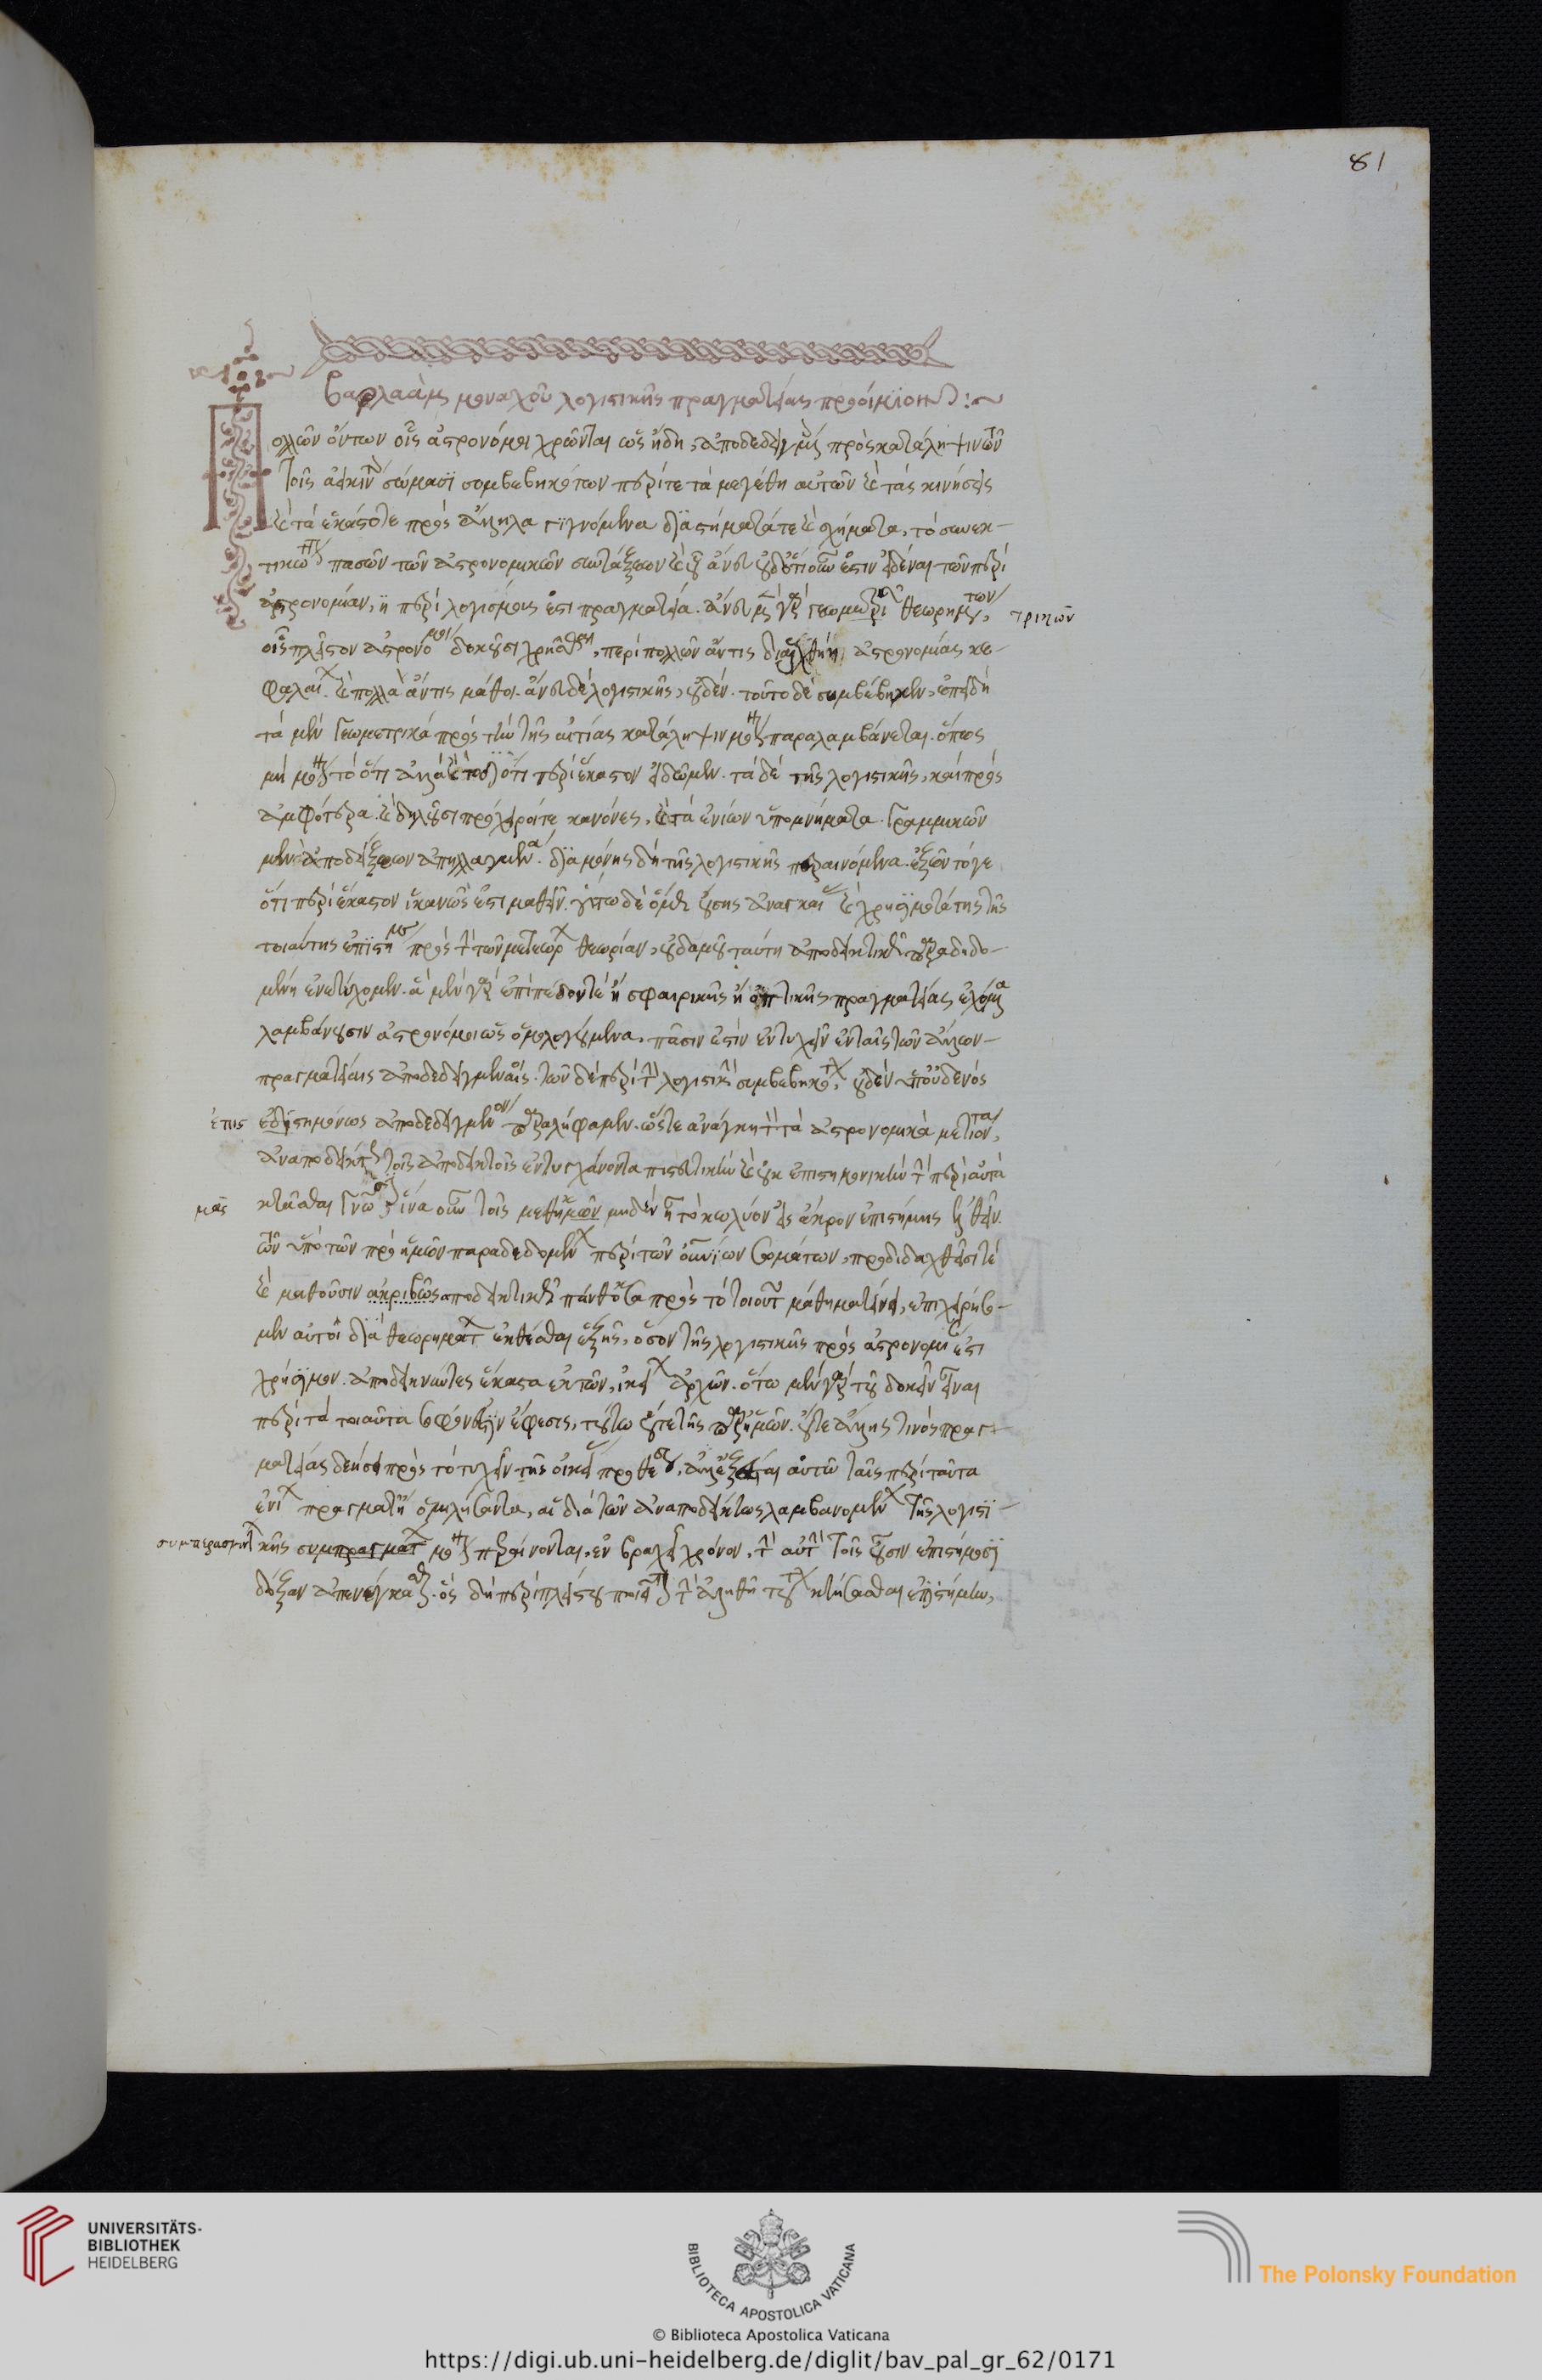 81
βαρλαὰμ μοναχοῦ λογιστικῆς πραγματείας προοίμιον :~
Πολλῶν ὄντων οἷς ἀστρονόμοι χρῶνται ὡς ἤδη ἀποδεδειγμένοις πρὸς κατάληψιν τῶν
τοῖς σώμασι συμβεβηκότων περί τε τὰ μεγέθη αὐτῶν καὶ τὰς κινήσεις
καὶ τὰ ἑκάστοτε πρὸς ἄλληλα γιγνόμενα διαστήματά τε καὶ σχήματα, τὸ συνεκ-
τικώτατον πασῶν τῶν ἀστρονομικῶν συντάξεων καὶ οὗ ἄνευ οὐδοτιοῦν ἔστιν εἰδέναι τῶν περὶ
ἀστρονομίαν, ἡ περὶ λογισμούς ἐστι πραγματεία. ἄνευ μὲν γὰρ γεωμετρικῶν θεωρημάτων,
τρικῶν
οἷς πλεῖστον ἀστρονόμοι δοκοῦσι χρῆσθαι, περὶ πολλῶν ἄν τις διαλεχθείη ἀστρονομίας κε-
φαλαίων καὶ πολλὰ ἄν τις μάθοι. ἄνευ δὲ λογιστικῆς, οὐδέν. τοῦτο δὲ συμβέβηκεν, ἐπειδὴ
τὰ μὲν γεωμετρικὰ πρὸς τὴν τῆς αἰτίας κατάληψιν μόνην παραλαμβάνεται. ὅπως
μὴ μόνον τὸ ὅτι ἀλλὰ καὶ τὸ διότι περὶ ἕκαστον εἰδῶμεν. τὰ δὲ τῆς λογιστικῆς, καὶ πρὸς
ἀμφότερα. καὶ δηλοῦσι πρόχειροί τε κανόνες, καὶ τὰ ἐνίων ὑπομνήματα. γραμμικῶν
μὲν ἀποδείξεων ἀπηλλαγμένα. διὰ μόνης δὴ τῆς λογιστικῆς περαινόμενα. ἐξ ὧν τό γε
ὅτι περὶ ἕκαστον ἱκανῶς ἔστι μαθεῖν. οὕτω δὲ ὅμως οὔσης ἀναγκαίας καὶ χρησιμωτάτης τῆς
τοιαύτης ἐπιστήμης πρὸς τὴν τῶν μετεώρων θεωρίαν, οὐδαμοῦ ταύτῃ ἀποδεικτικῶς παραδιδο-
μένῃ ἐνετύχομεν. ἃ μὲν γὰρ ἐπιπέδου τε ἢ σφαιρικῆς ἢ ὀπτικῆς πραγματείας ἐχόμενα
λαμβάνουσιν ἀστρονόμοι ὡς ὁμολογούμενα, πᾶσιν ἔστιν ἐντυχεῖν ἐν ταῖς τῶν ἄλλων
πραγματείαις ἀποδεδειγμένοις. τῶν δὲ περὶ τὴν λογιστικὴν συμβεβηκότων, οὐδὲν ὑπ' οὐδενὸς
ἐπιστημόνως ἀποδεδειγμένον παρειλήφαμεν. ὥστε ἀνάγκη τὸν τὰ ἀστρονομικὰ μετιόντα,
ἀναποδείκτως τοῖς ἀποδεικτοῖς ἐντυγχάνοντα πιστικὴν καὶ οὐκ ἐπιστημονικὴν τὴν περὶ αὐτὰ
μᾶς
κτᾶσθαι γνῶσιν ἵνα οὖν τοῖς μεθ' ἡμῶν μηδὲν ᾖ τὸ κωλύον εἰς ἄκρον ἐπιστήμης ἐλθεῖν
τῶν ὑπὸ τῶν πρὸ ἡμῶν παραδεδομένων περὶ τῶν οὐρανίων σωμάτων, προδιδαχθεῖσί τε
καὶ μαθοῦσιν ἀκριβῶς ἀποδεικτικῶς πάνθ' ὅσα πρὸς τὸ τοιοῦτον μάθημα τείνει, ἐπιχειρήσο-
μεν αὐτοὶ διὰ θεωρημάτων ἐκθέσθαι ἑξῆς, ὅσον τῆς λογιστικῆς πρὸς ἀστρονομίαν ἐστὶ
χρήσιμον. ἀποδεικνύντες ἕκαστα ἐκ τῶν οἰκείων ἀρχῶν. ὅτῳ μὲν γὰρ τοῦ δοκεῖν εἶναι
περὶ τὰ τοιαῦτα σοφὸν ἔφεσις, τούτῳ οὔτε τῆς παρ' ἡμῶν. οὔτε ἄλλης τινὸς πραγ-
ματείας δεήσει πρὸς τὸ τυχεῖν τῆς οἰκείας προθέσεως, ἀλλ' ἐξέσται αὐτῷ ταῖς περὶ ταῦτα
ἐνίων πραγματείαις ὁμιλήσαντα, αἳ διὰ τῶν ἀναποδείκτως λαμβανομένων τῆς λογιστι-
συμπερασμάτων
κῆς συμπρασμάτων μόνων περαίνονται, ἐν βραχεῖ χρόνῳ, τὴν αὐτὴν τοῖς οὖσιν ἐπιστήμοσι
δόξαν ἀπενέγκασθαι. ὃς δὴ περὶ πλείστου ποιεῖται τὴν ἀληθῆ τούτων κτήσασθαι ἐπιστήμην,
UNIVERSITÄTS-
BIBLIOTHEK
HEIDELBERG
BIBLIOTECA APOSTOLICA VATICANA
The Polonsky Foundation
© Biblioteca Apostolica Vaticana
https://digi.ub.uni-heidelberg.de/diglit/bav_pal_gr_62/0171